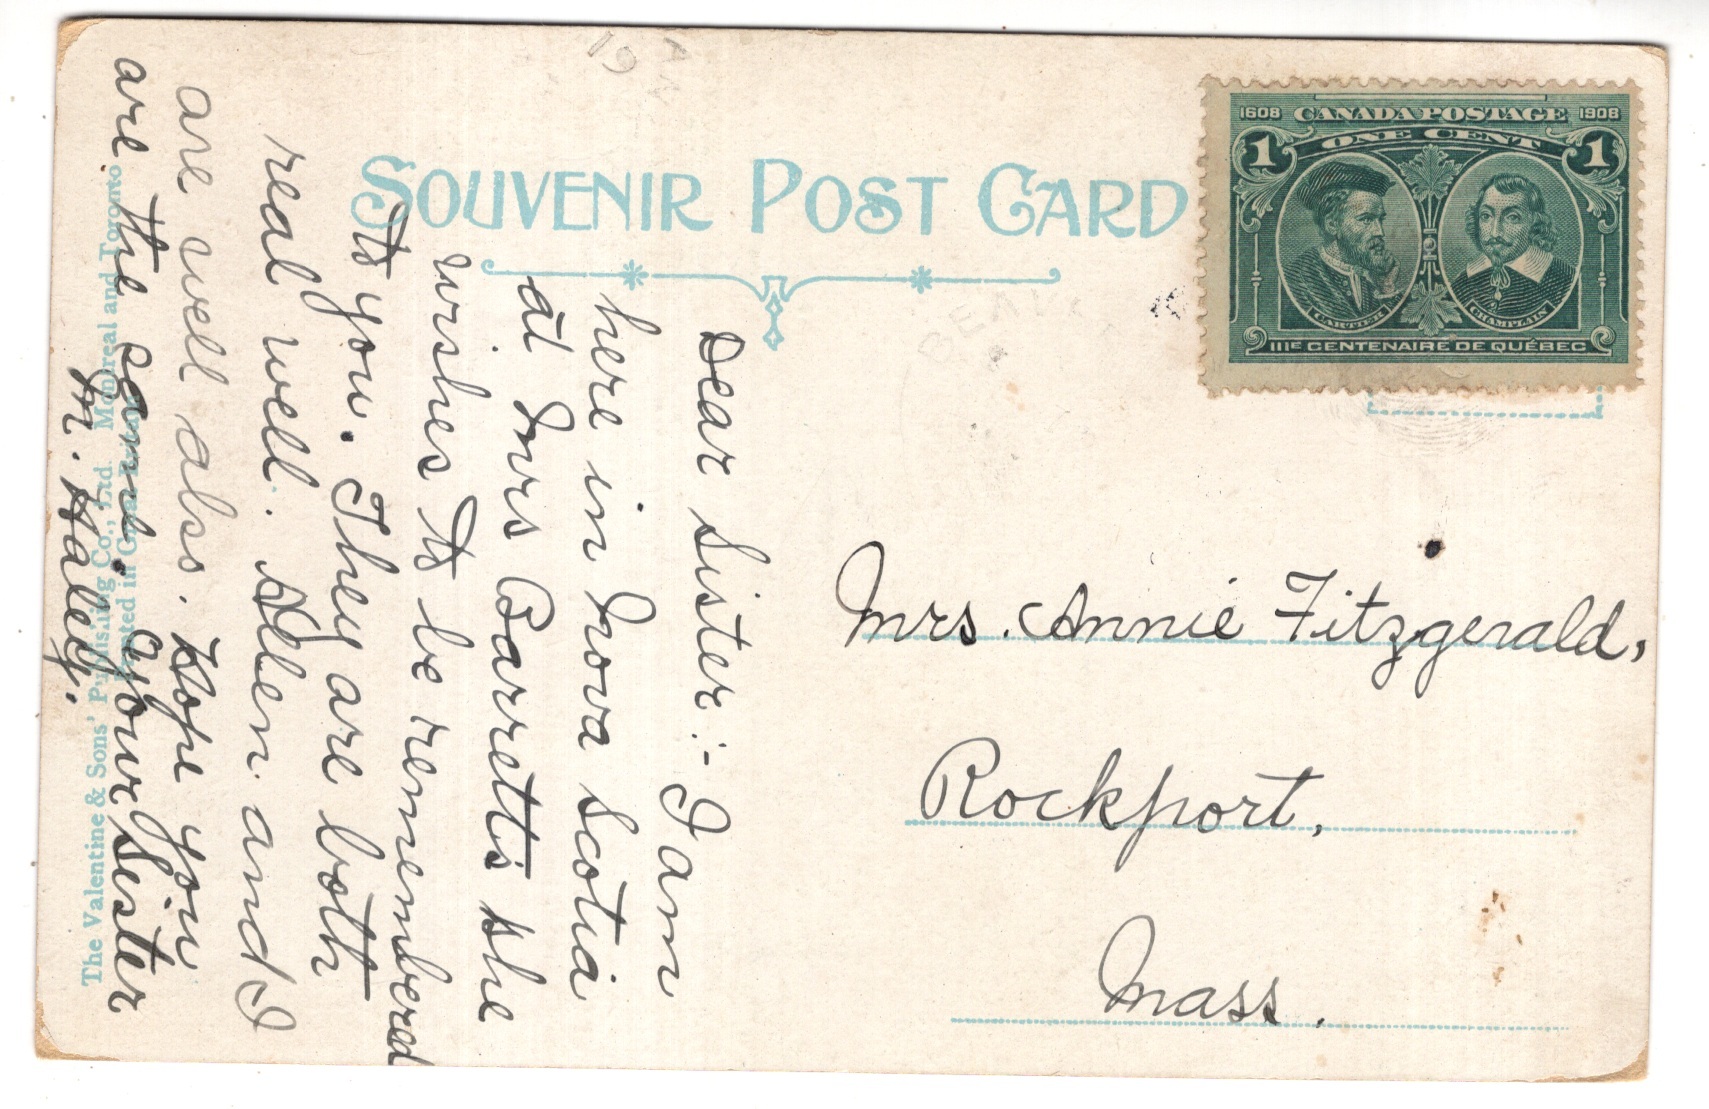 SOUVENIR POST CARD
1608 CANADA POSTAGE 1908
ONE CENT
1 1
CARTIER CHAMPLAIN
IIIE CENTENAIRE DE QUÉBEC
Mrs. Annie Fitzgerald,
Rockport,
Mass.
Dear Sister:- I am
here in Nova Scotia
at Mrs Barretts she
wishes to be remembered
to you. They are both
real well. Allen and I
are well also. Hope you
are the same. Your Sister
M. Haley.
The Valentine & Sons' Publishing Co., Ltd. Montreal and Toronto
Printed in Great Britain
19